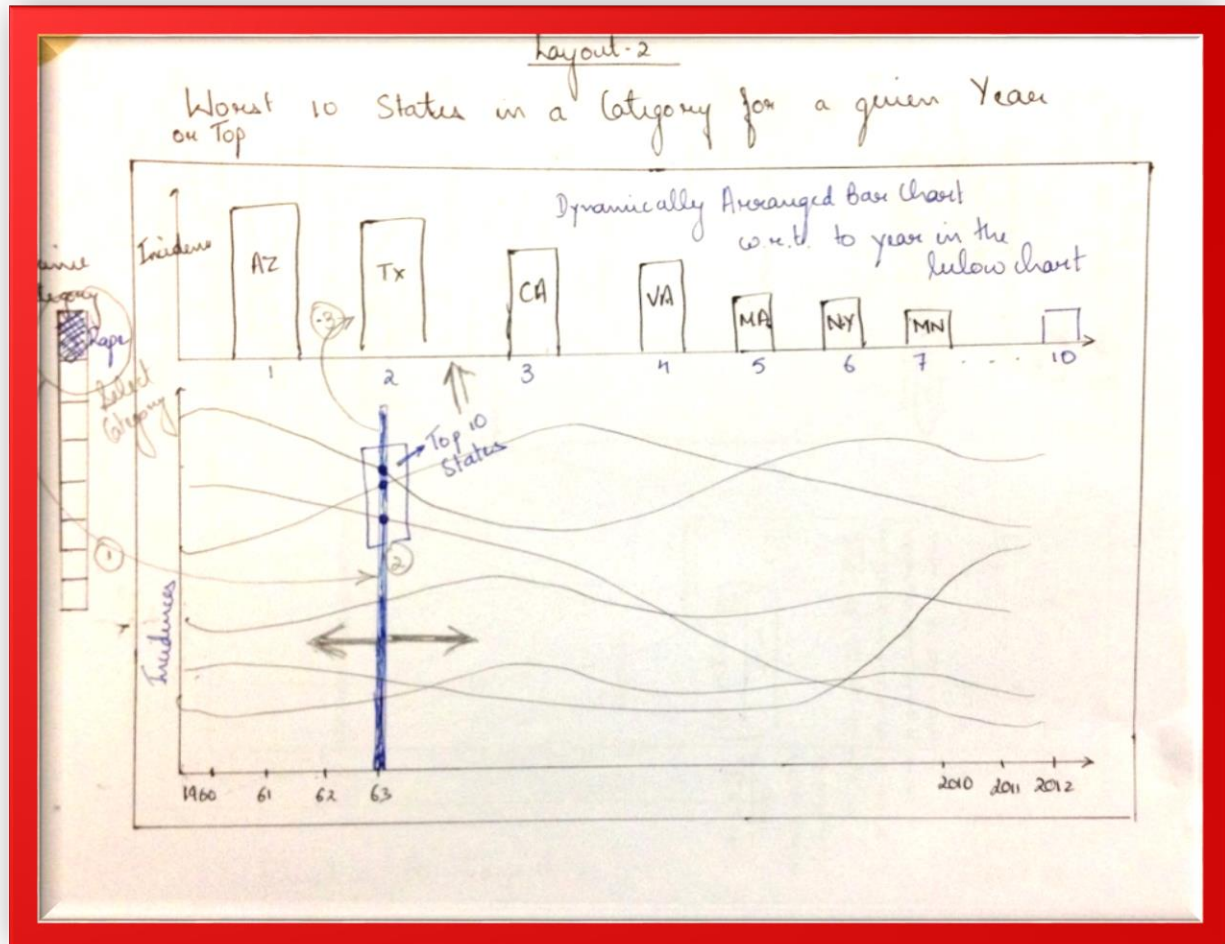 Layout-2
Worst 10 States in a Category for a given Year
or Top
Dynamically Arranged Bar Chart
w.r.t. to year in the
below chart
Incidence
AZ
Tx
CA
VA
MA
NY
MN
1 2 3 4 5 6 7 .... 10
Rape
Select
Category
3
Top 10
States
1
2
Incidences
1960 61 62 63 2010 2011 2012